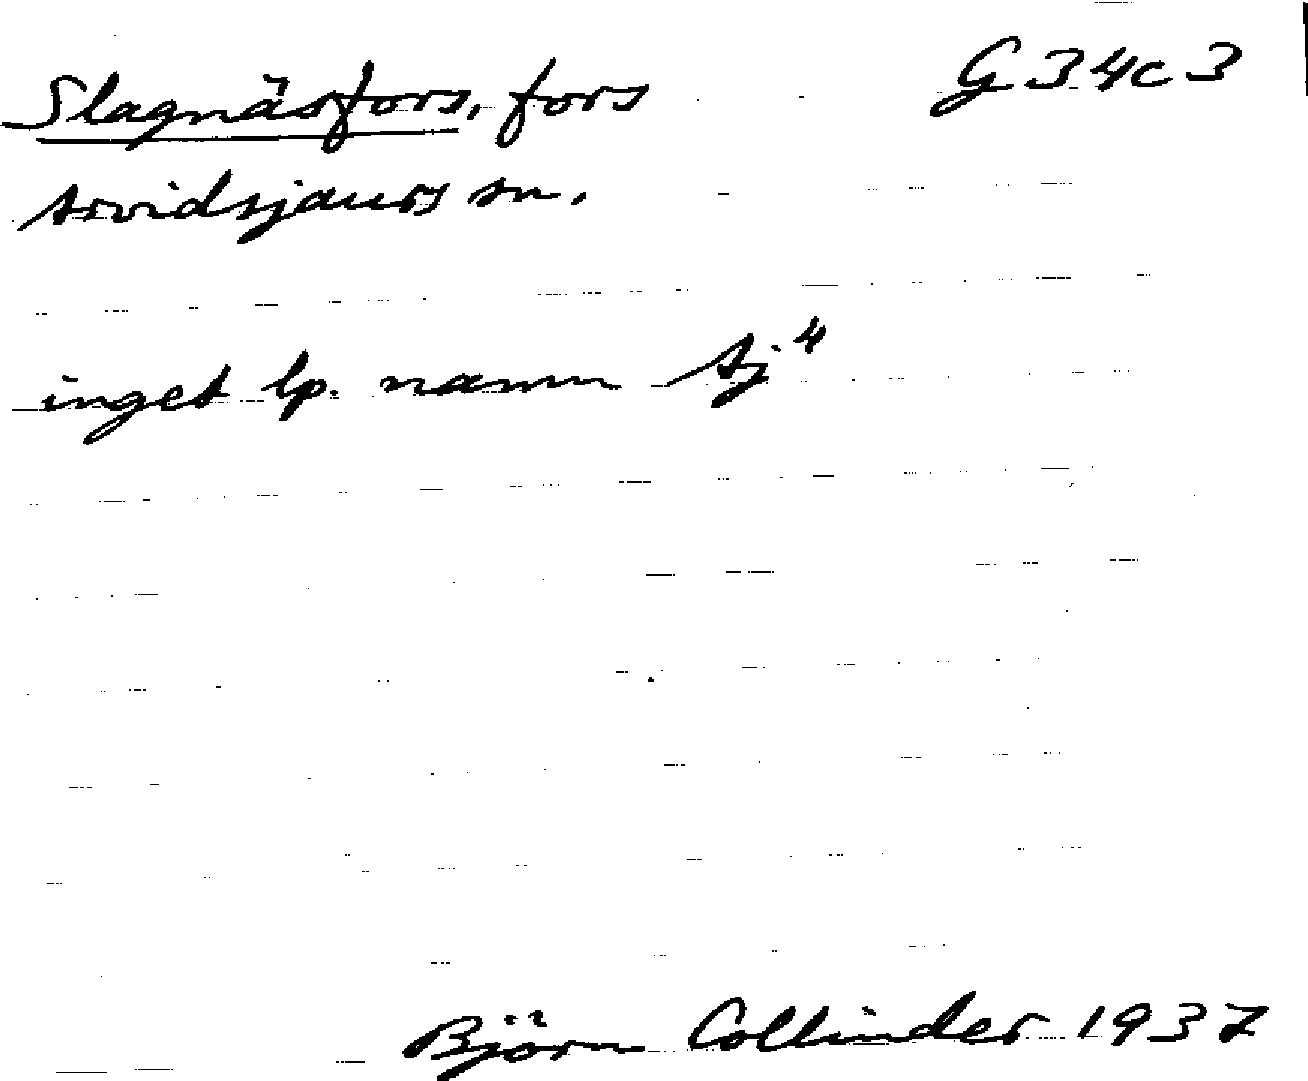 Slagnäsfors, fors G34c3
Arvidsjaurs sn.
inget lp. namn Aj⁴
Björn Collinder 1937